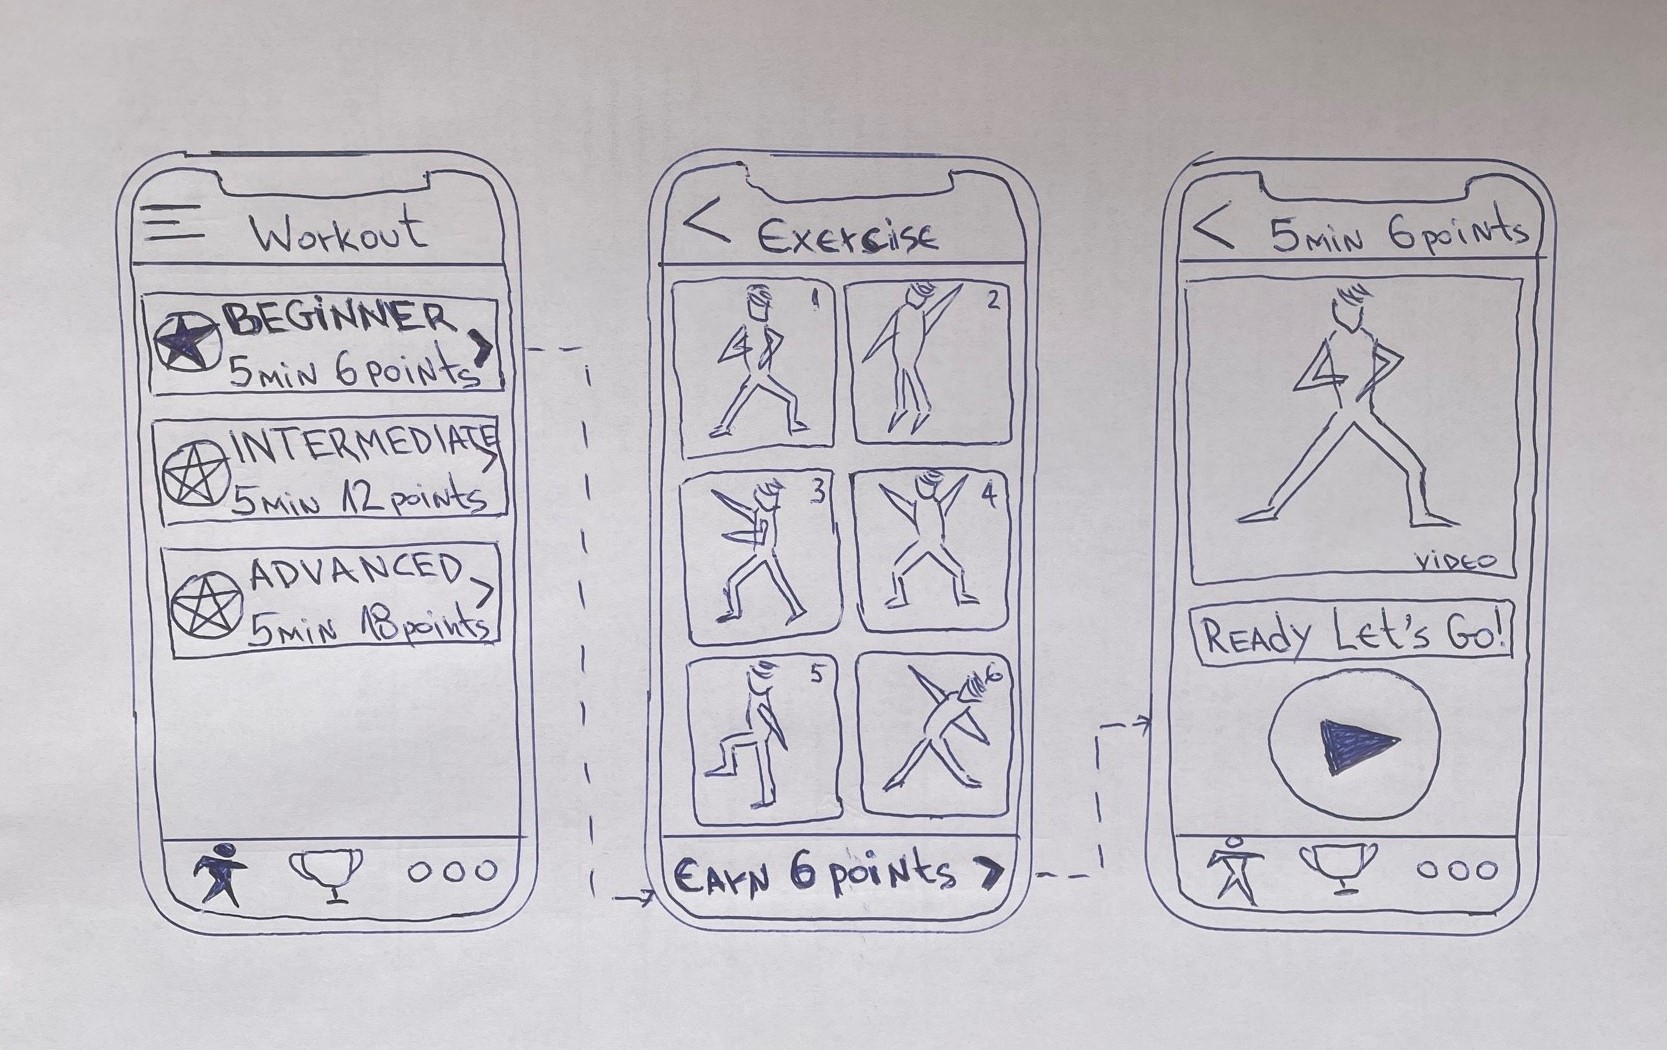 Workout
BEGINNER
5min 6points
INTERMEDIATE
5min 12points
ADVANCED
5min 18points
Exercise
1
2
3
4
5
6
EARN 6 points
5min 6points
VIDEO
READY LET'S GO!